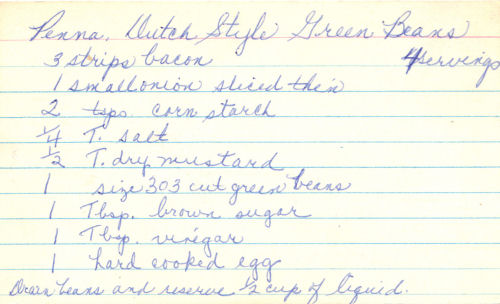 Penna. Dutch Style Green Beans
3 strips bacon 4 servings
1 small onion sliced thin
2 tsps. corn starch
1/4 T. salt
1/2 T. dry mustard
1 size 303 cut green beans
1 Tbsp. brown sugar
1 Tbsp. vinegar
1 hard cooked egg
Drain beans and reserve 1/2 cup of liquid.